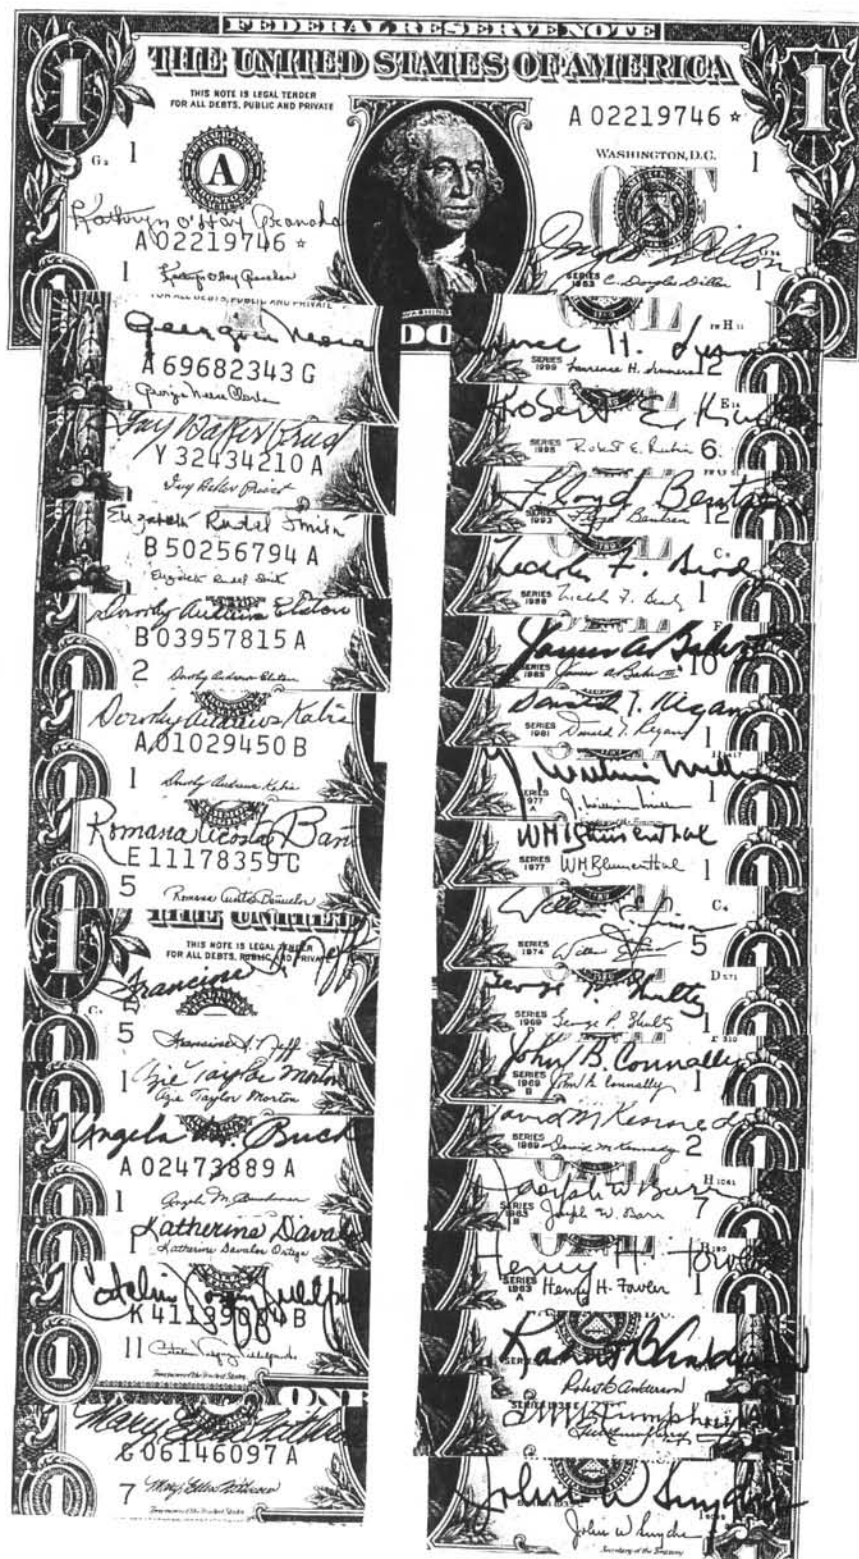 FEDERAL RESERVE NOTE
THE UNITED STATES OF AMERICA
THIS NOTE IS LEGAL TENDER
FOR ALL DEBTS, PUBLIC AND PRIVATE
A 02219746 *
WASHINGTON, D.C.
1
1
A
Kathryn O'Hay Granahan
A 02219746 *
1
Kathryn O'Hay Granahan
Douglas Dillon
SERIES
1963
C. Douglas Dillon
1
FOR ALL DEBTS, PUBLIC AND PRIVATE
Georgia Neese
A 69682343 G
Georgia Neese Clark
Ivy Baker Priest
Y 32434210 A
Ivy Baker Priest
Elizabeth Rudel Smith
B 50256794 A
Elizabeth Rudel Smith
Dorothy Andrews Elston
B 03957815 A
2
Dorothy Andrews Elston
Dorothy Andrews Kabis
A 01029450 B
1
Dorothy Andrews Kabis
Romana Acosta Bañ
E 11178359 G
5
Romana Acosta Bañuelos
THE UNITED
THIS NOTE IS LEGAL TENDER
FOR ALL DEBTS, PUBLIC AND PRIVATE
Francine I. Neff
5
Francine I. Neff
1
Azie Taylor Morton
Azie Taylor Morton
Angela M. Buch
A 02473889 A
1
Angela M. Buchanan
Katherine Davalos
1
Katherine Davalos Ortega
K 41139084 B
11
Catalina Vasquez Villalpando
Treasurer of the United States
ONE
Mary Ellen Withrow
G 06146097 A
7
Mary Ellen Withrow
Treasurer of the United States
DO
H
SERIES
1999
Lawrence H. Summers
12
Robert E. Rubin
SERIES
1995
Robert E. Rubin
6
Lloyd Bentsen
SERIES
1993
Lloyd Bentsen
12
Nicholas F. Brady
SERIES
1988
Nicholas F. Brady
1
James A. Baker
SERIES
1985
James A. Baker III
10
Donald T. Regan
SERIES
1981
Donald T. Regan
1
G. William Miller
SERIES
1977
A
G. William Miller
1
WM Blumenthal
SERIES
1977
WM Blumenthal
1
William E. Simon
SERIES
1974
William E. Simon
5
George P. Shultz
SERIES
1969
George P. Shultz
1
John B. Connally
SERIES
1969
B
John B. Connally
1
David M Kennedy
SERIES
1969
David M. Kennedy
2
Joseph W Barr
SERIES
1963
B
Joseph W. Barr
7
Henry H. Fowler
SERIES
1963
A
Henry H. Fowler
Robert B Anderson
Robert B Anderson
G M Humphrey
G M Humphrey
John W Snyder
John W Snyder
Secretary of the Treasury